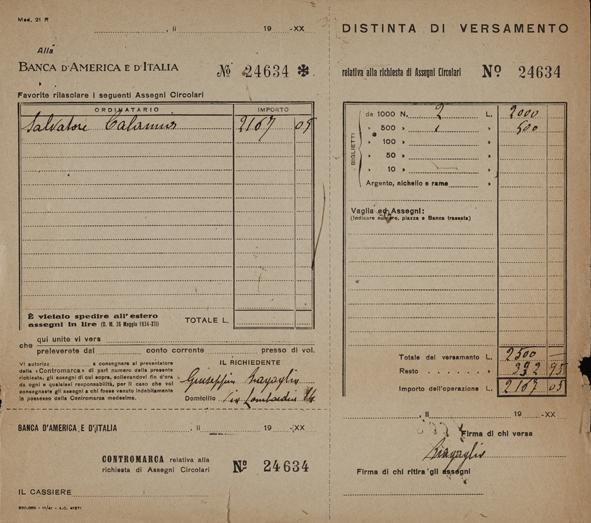 Mod. 21 R
, li 19 -XX
Alla
BANCA D'AMERICA E D'ITALIA
Nº 24634 ✻
Favorite rilasciare i seguenti Assegni Circolari
ORDINATARIO IMPORTO
Salvatore 2167 05
È vietato spedire all'estero
assegni in lire (D. M. 26 Maggio 1934-XII)
TOTALE L.
che qui unite vi vers
preleverete dal conto corrente presso di voi.
Vi autorizz a consegnare al presentatore
della «Contromarca» di pari numero della presente
richiesta, gli assegni di cui sopra, sollevandovi fin d'ora
da ogni e qualsiasi responsabilità, per il caso che voi
consegnaste gli assegni a chi fosse venuto indebitamente
in possesso della Contromarca medesima.
IL RICHIEDENTE
Giuseppina
Domicilio Via Lombardia
BANCA D'AMERICA E D'ITALIA , li 19 -XX
CONTROMARCA relativa alla
richiesta di Assegni Circolari
Nº 24634
IL CASSIERE
DISTINTA DI VERSAMENTO
relativa alla richiesta di Assegni Circolari Nº 24634
BIGLIETTI
da 1000 N. 2 L. 2000
» 500 » 1 » 500
» 100 » »
» 50 » »
» 10 » »
Argento, nichelio e rame »
Vaglia ed Assegni:
(Indicare numero, piazza e Banca trassata)
Totale del versamento L. 2500 —
Resto . . . . . . » 332 95
Importo dell'operazione L. 2167 05
, li 19 -XX
Firma di chi versa
Firma di chi ritira gli assegni